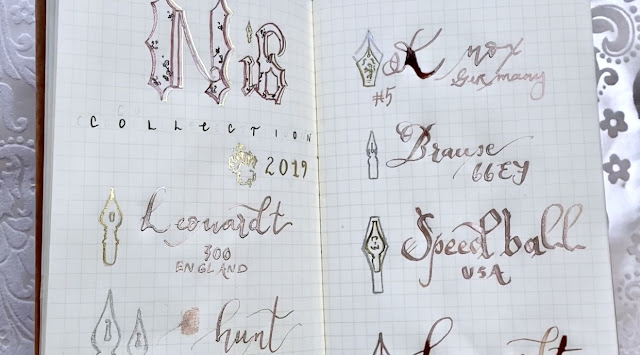 NiB
COLLECTION
2019
Leonardt
300
ENGLAND
hunt
Knox
Germany
#5
Brause
66EF
Speed ball
USA